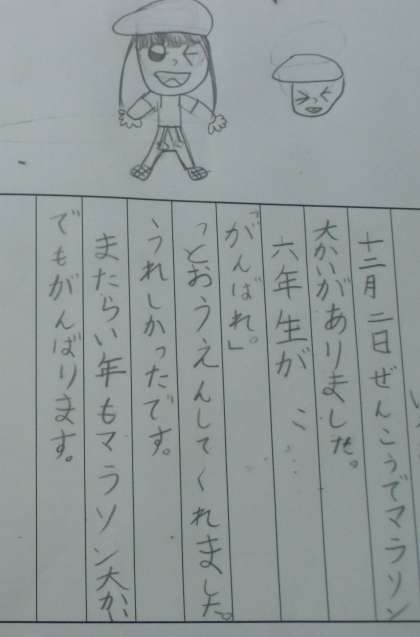 十二月二日ぜんこうでマラソン
大かいがありました。
六年生が
「がんばれ。」
っとおうえんしてくれました。
うれしかったです。
またらい年もマラソン大かい
でもがんばります。